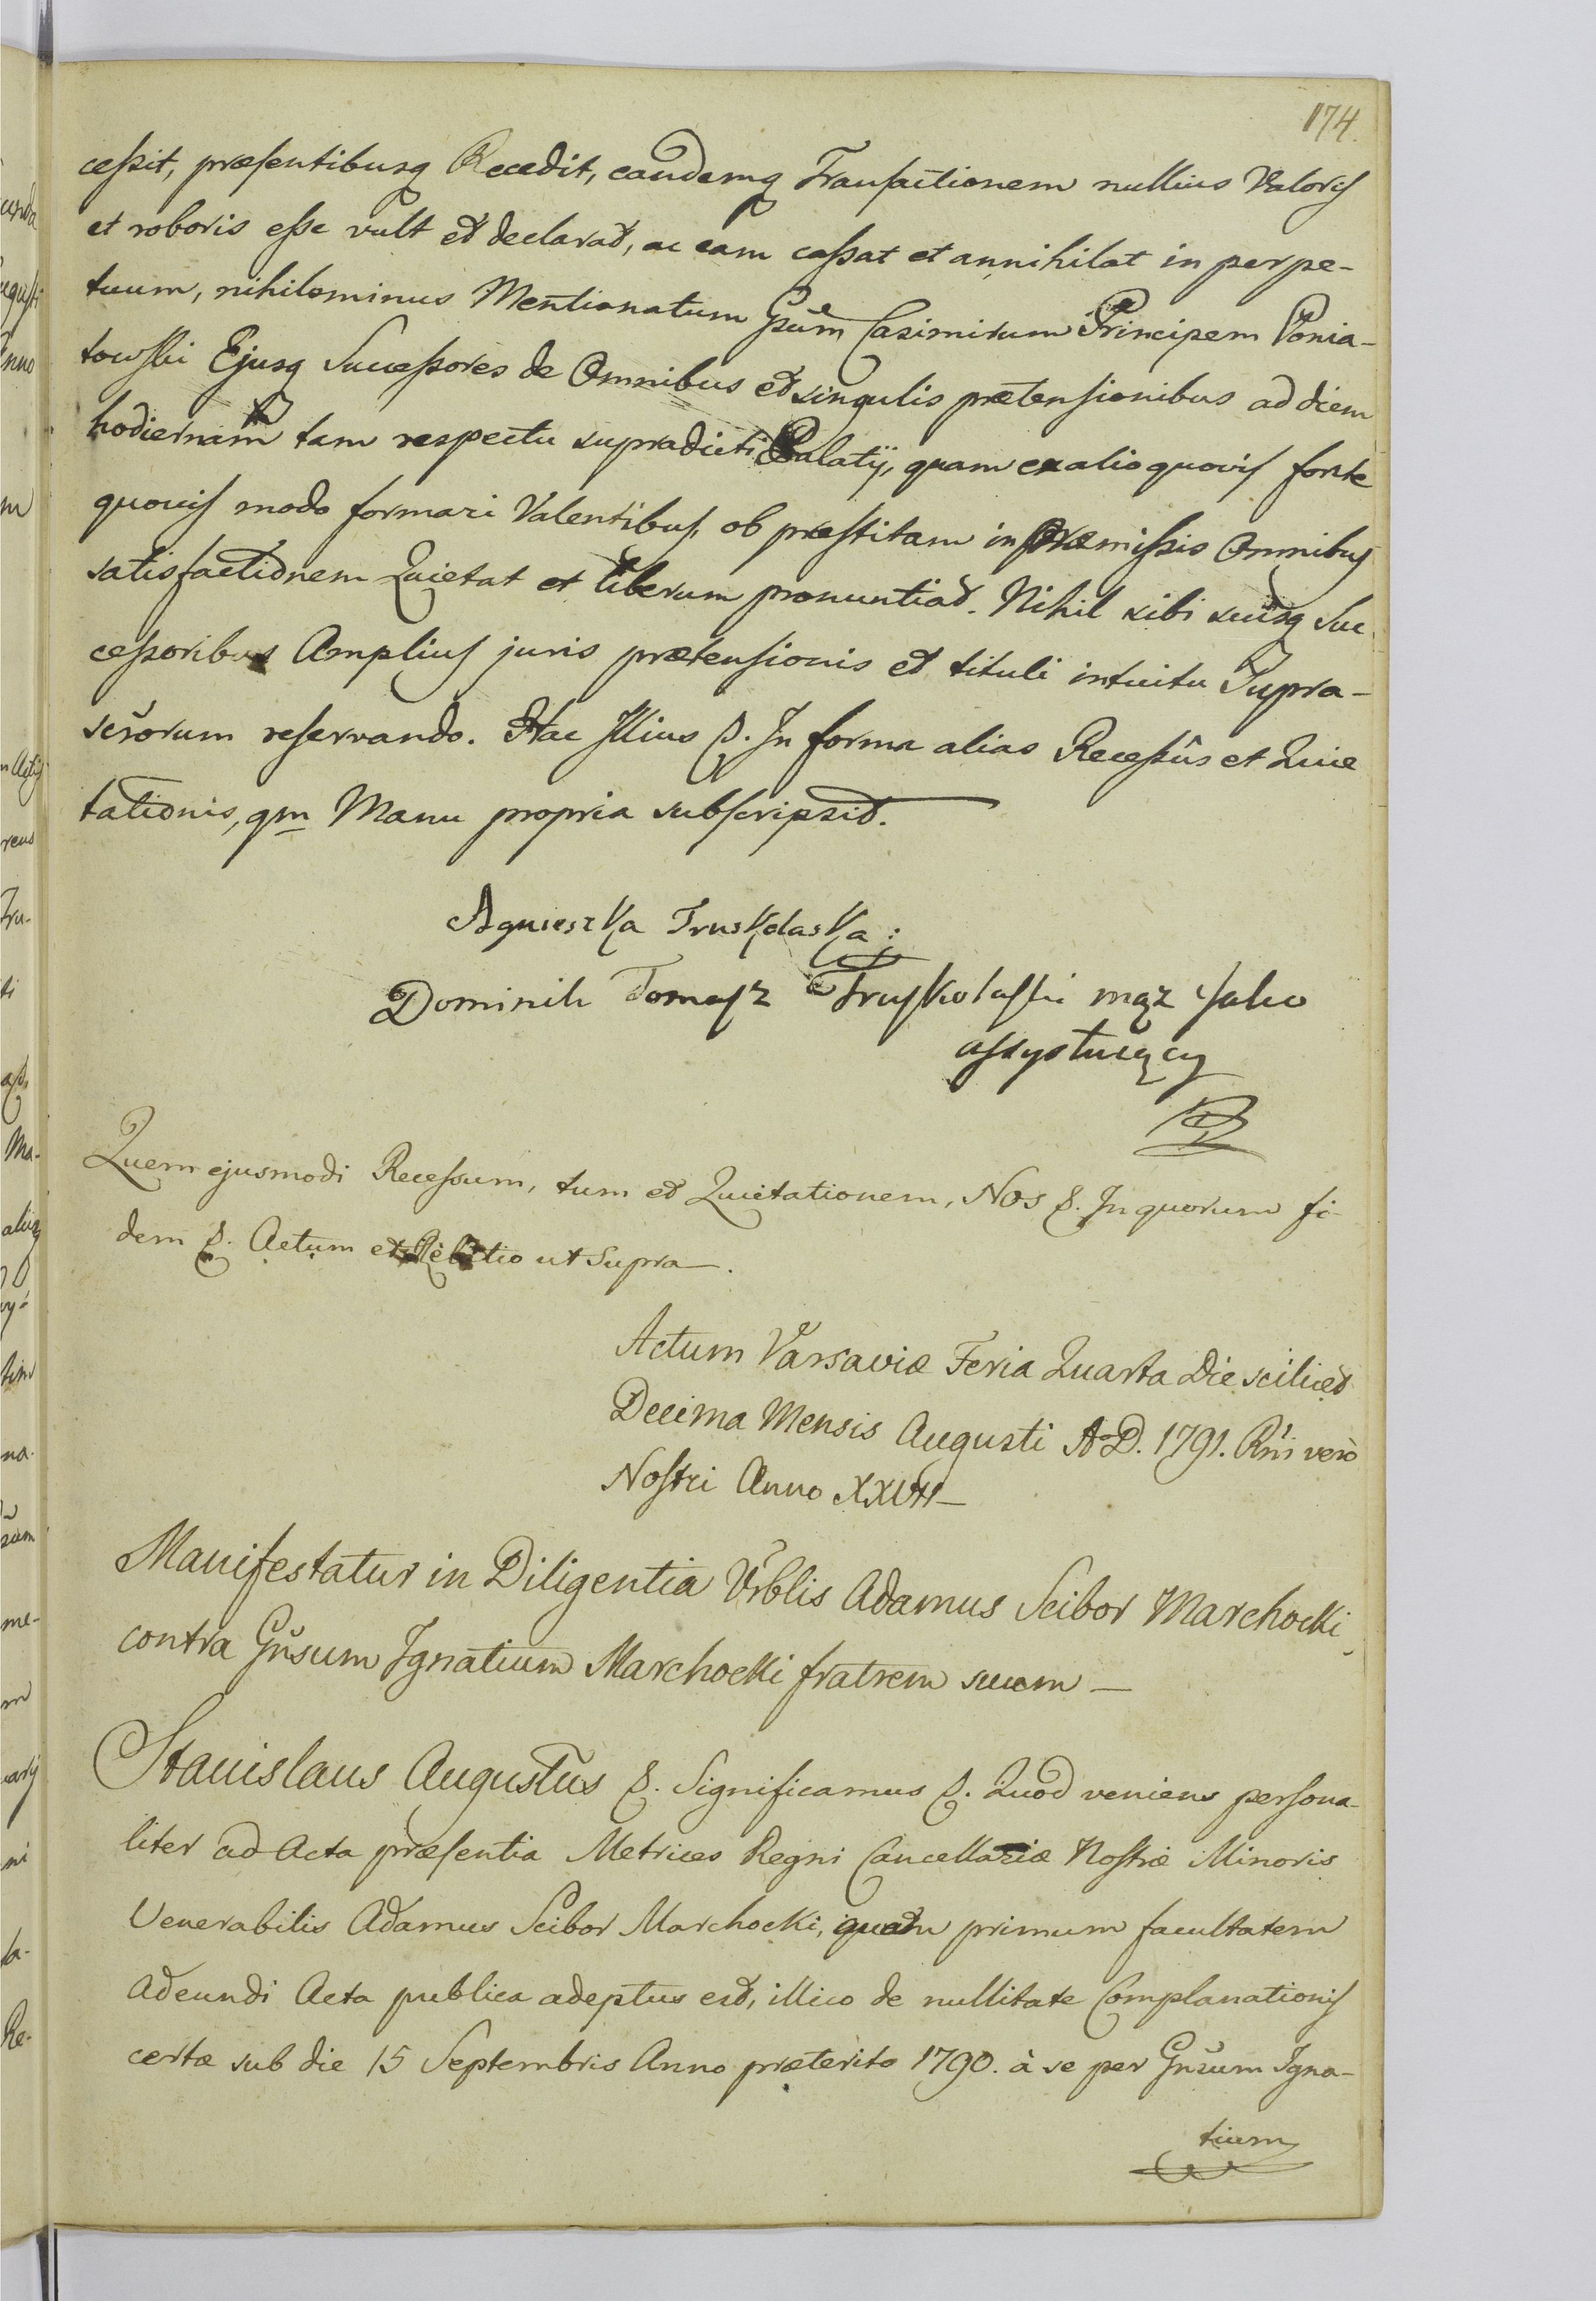 174.
cessit, præsentibusq Recedit, eandemq Transactionem nullius Valoris
et roboris esse vult et declarat, ac eam cassat et annihilat in perpe-
tuum, nihilominus Mentionatum Gsum Casimirum Principem Ponia-
towski Ejusq Successores de Omnibus et singulis prætensionibus ad diem
hodiernam tam respectu supradicti Palatij, quam ex alio quovis forte
quovis modo formari Valentibus, ob præstitam in præmissis Omnibus
satisfactionem Quietat et liberum pronuntiat. Nihil sibi suisq Suc
cessoribus Amplius juris prætensionis et tituli intuitu Supra-
scrorum reservando. Hac Illius &. In forma alias Recessûs et Quie
tationis, qm Manu propria subscripsit.
Agnieszka Truskolaska:
Dominik Tomasz Truskolaski mąz jako
assystuiący
Quem ejusmodi Recessum, tum et Quietationem, Nos &. In quorum fi-
dem &. Actum et Relatio ut Supra.
Actum Varsaviæ Feria Quarta Die scilicet
Decima Mensis Augusti A. D. 1791. Rni vero
Nostri Anno XXVII—
Manifestatur in Diligentia Vrblis Adamus Scibor Marchocki,
contra Gnsum Ignatium Marchocki fratrem suum —
Stanislaus Augustus &. Significamus &. Quod veniens persona-
liter ad Acta præsentia Metrices Regni Cancellariæ Nostræ Minoris
Venerabilis Adamus Scibor Marchocki, quam primum facultatem
adeundi Acta publica adeptus est, illico de nullitate Complanationis
certæ sub die 15 Septembris Anno præterito 1790. à se per Gnsum Igna-
tium